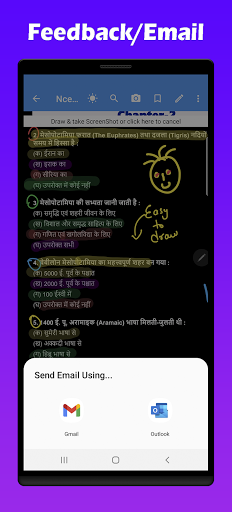 Feedback/Email
Nce...
Chapter-2
Draw & take ScreenShot or click here to cancel
2. मेसोपोटामिया फरात (The Euphrates) तथा दजला (Tigris) नदियों
समय में हिस्सा है :
(क) ईरान का
(ख) इराक का
(ग) सीरिया का
(घ) उपरोक्त में कोई नहीं
3. मेसोपोटामिया की सभ्यता जानी जाती है :
(क) समृद्धि एवं शहरी जीवन के लिए
(ख) विशाल और समृद्ध साहित्य के लिए
(ग) गणित एवं खगोलविद्या के लिए
(घ) उपरोक्त सभी
Easy
to
draw
4. बेबीलोन मेसोपोटामिया का महत्वपूर्ण शहर बन गया :
(क) 5000 ई. पूर्व के पश्चात
(ख) 2000 ई. पूर्व के पश्चात
(ग) 100 ईस्वी में
(घ) उपरोक्त में कोई नहीं
5. 1400 ई. पू. अरामाइक (Aramaic) भाषा मिलती-जुलती थी :
(क) सुमेरी भाषा से
(ख) अक्कदी भाषा से
(ग) हिब्रू भाषा से
Send Email Using...
Gmail
Outlook